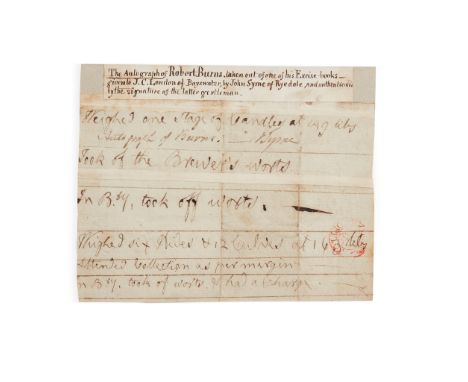 The Autograph of Robert Burns, taken out of one of his Excise-books—
given to J. C. Loudon of Bayswater, by John Syme of Ryedale, and authenticated
by the signature of the latter gentleman.
Weighed one Stage of Candles at
Autograph of Burns. — Syme
Took of the Brewer's worts
In B<sup>y</sup>, took off worts.
Weighed six Hides & 12 Calves at
Attended Collection as per margin
In B<sup>y</sup>, took of worts & had a Charge